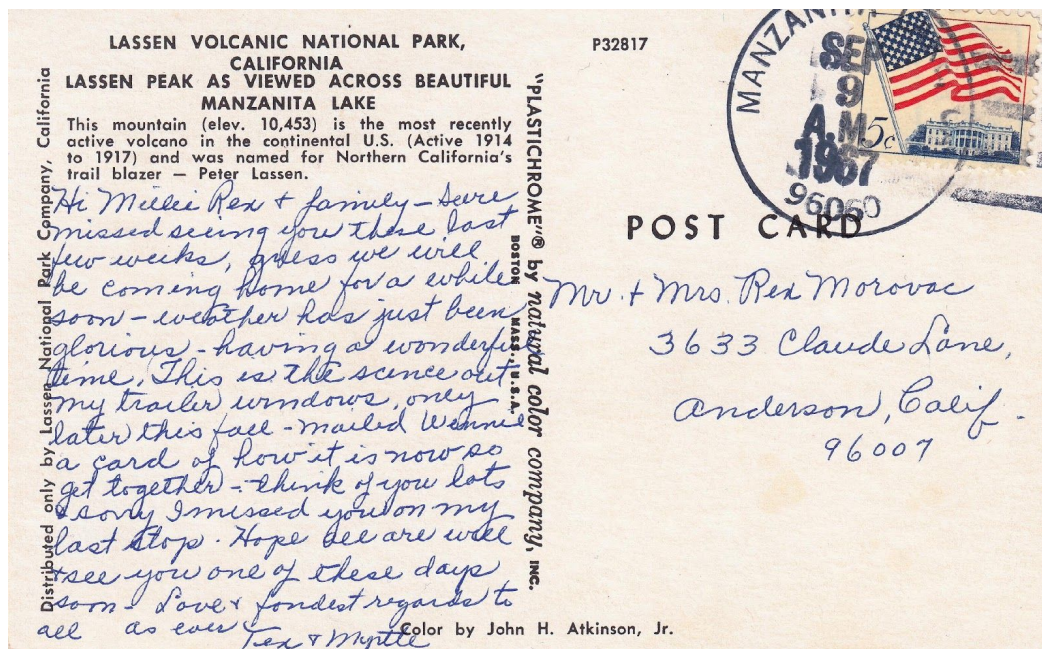 LASSEN VOLCANIC NATIONAL PARK,
CALIFORNIA
LASSEN PEAK AS VIEWED ACROSS BEAUTIFUL
MANZANITA LAKE
This mountain (elev. 10,453) is the most recently
active volcano in the continental U.S. (Active 1914
to 1917) and was named for Northern California's
trail blazer — Peter Lassen.
Hi Millie Rex & family – Sure
missed seeing you these last
few weeks, guess we will
be coming home for a while
soon – weather has just been
glorious – having a wonderful
time. This is the scence out
my trailer windows, only
later this fall – mailed Winnie
a card of how it is now so
get together – think of you lots
& sorry I missed you on my
last stop. Hope all are well
& see you one of these days
soon – Love & fondest regards to
all as ever
Tex & Myrtle
Distributed only by Lassen National Park Company, California
"PLASTICHROME"® by natural color company, INC.
BOSTON MASS., U.S.A.
Color by John H. Atkinson, Jr.
P32817
MANZANITA
SEP
9
A.M
1967
96060
5c
POST CARD
Mr. & Mrs. Rex Morovac
3633 Claude Lane,
Anderson, Calif.
96007